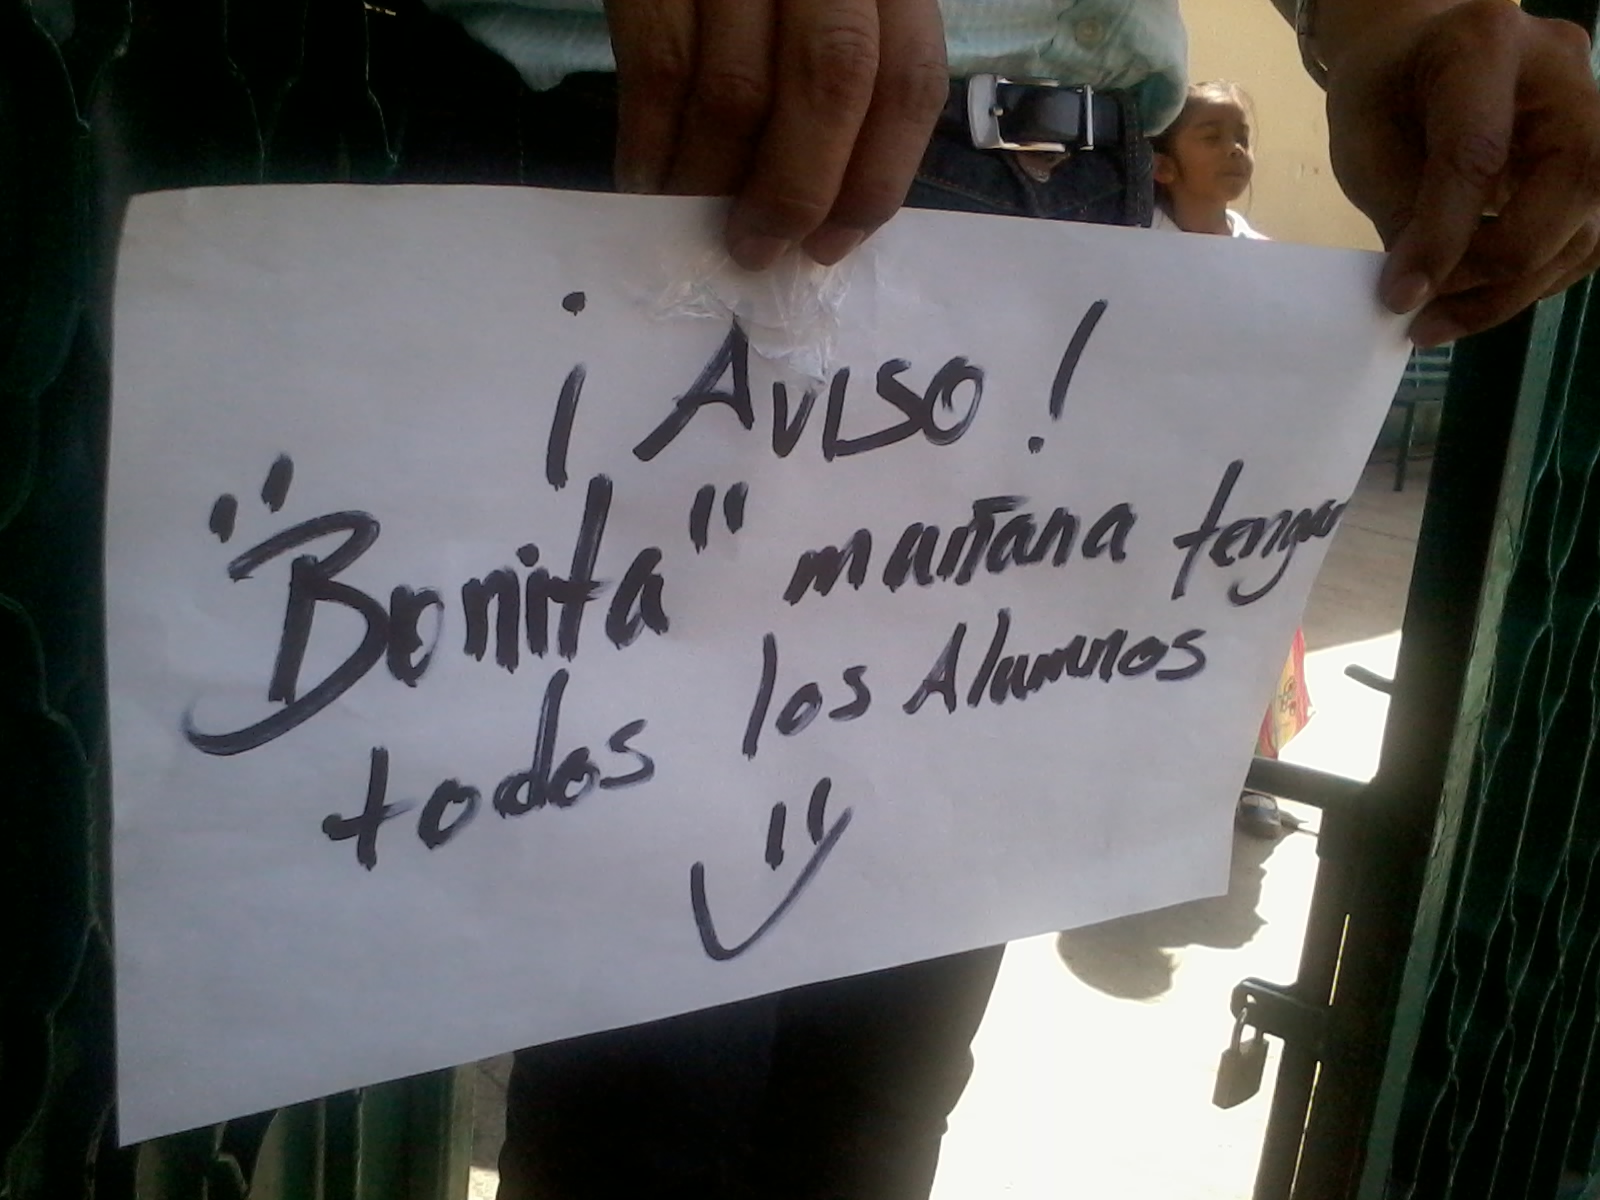 ¡AVISO!
"Bonita" mañana tengan
todos los Alumnos